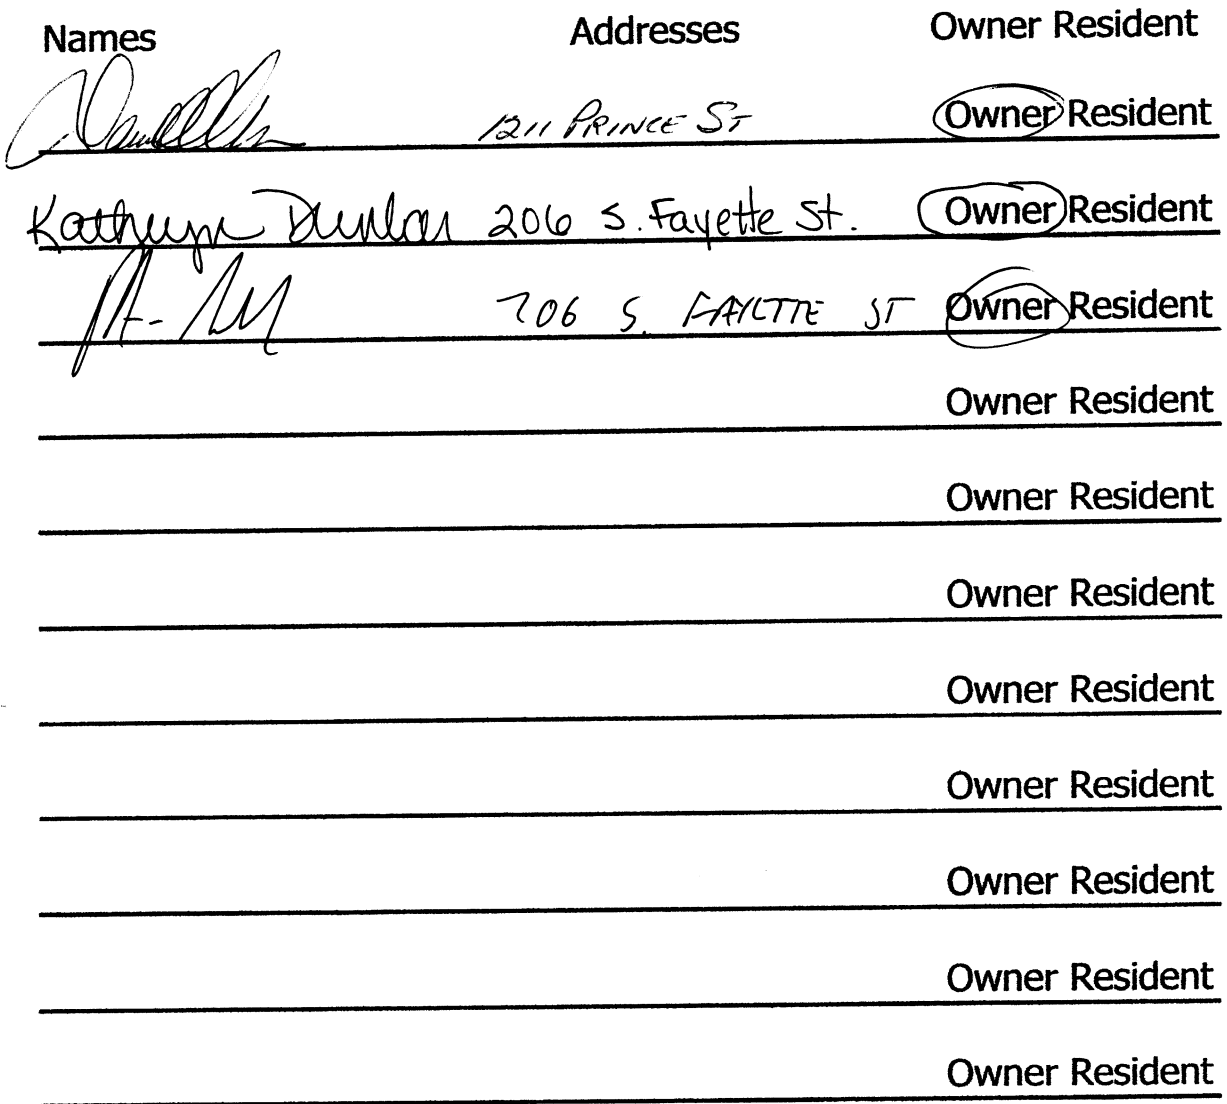 Names Addresses Owner Resident
1211 PRINCE ST Owner Resident
Kathryn Dunlap 206 S. Fayette St. Owner Resident
206 S. FAYETTE ST Owner Resident
Owner Resident
Owner Resident
Owner Resident
Owner Resident
Owner Resident
Owner Resident
Owner Resident
Owner Resident